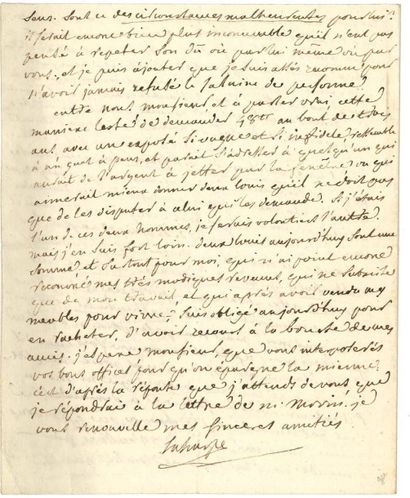 sans. Sont ce des circonstances malheureuses pour lui?
il serait encore bien plus inconcevable qu'il n'eut pas
pensé à repeter son dû ou par lui même ou par
vous, et je puis ajouter que je suis assés reconnu pour
n'avoir jamais refusé le salaire de personne.
entre nous monsieur, et à parler vrai, cette
maniere leste de demander 48 au bout de
ans avec un exposé si vague et si infidele ressemble
à un guet à pens, et parait s'adresser à quelqu'un qui
aurait de l'argent à jetter par la fenêtre ou qui
aimerait mieux donner deux louis qu'il ne doit pas
que de les disputer à celui qui les demande. Si j'étais
l'un de ces deux hommes, je serais volontiers l'autre
mais j'en suis fort loin. deux louis aujourd'huy sont une
somme et surtout pour moi, qui n'ai point encore
recouvré mes très modiques revenus, qui ne subsiste
que de mon travail, et qui après avoir vendu mes
meubles pour vivre, suis obligé aujourd'huy pour
en racheter, d'avoir recours à la bourse de mes
amis. j'espere monsieur, que vous interposerés
vos bons offices pour qu'on épargne la mienne.
c'est d'après la réponse que j'attends de vous que
je répondrai à la lettre de m. je
vous renouvelle mes sinceres amitiés
Laharpe